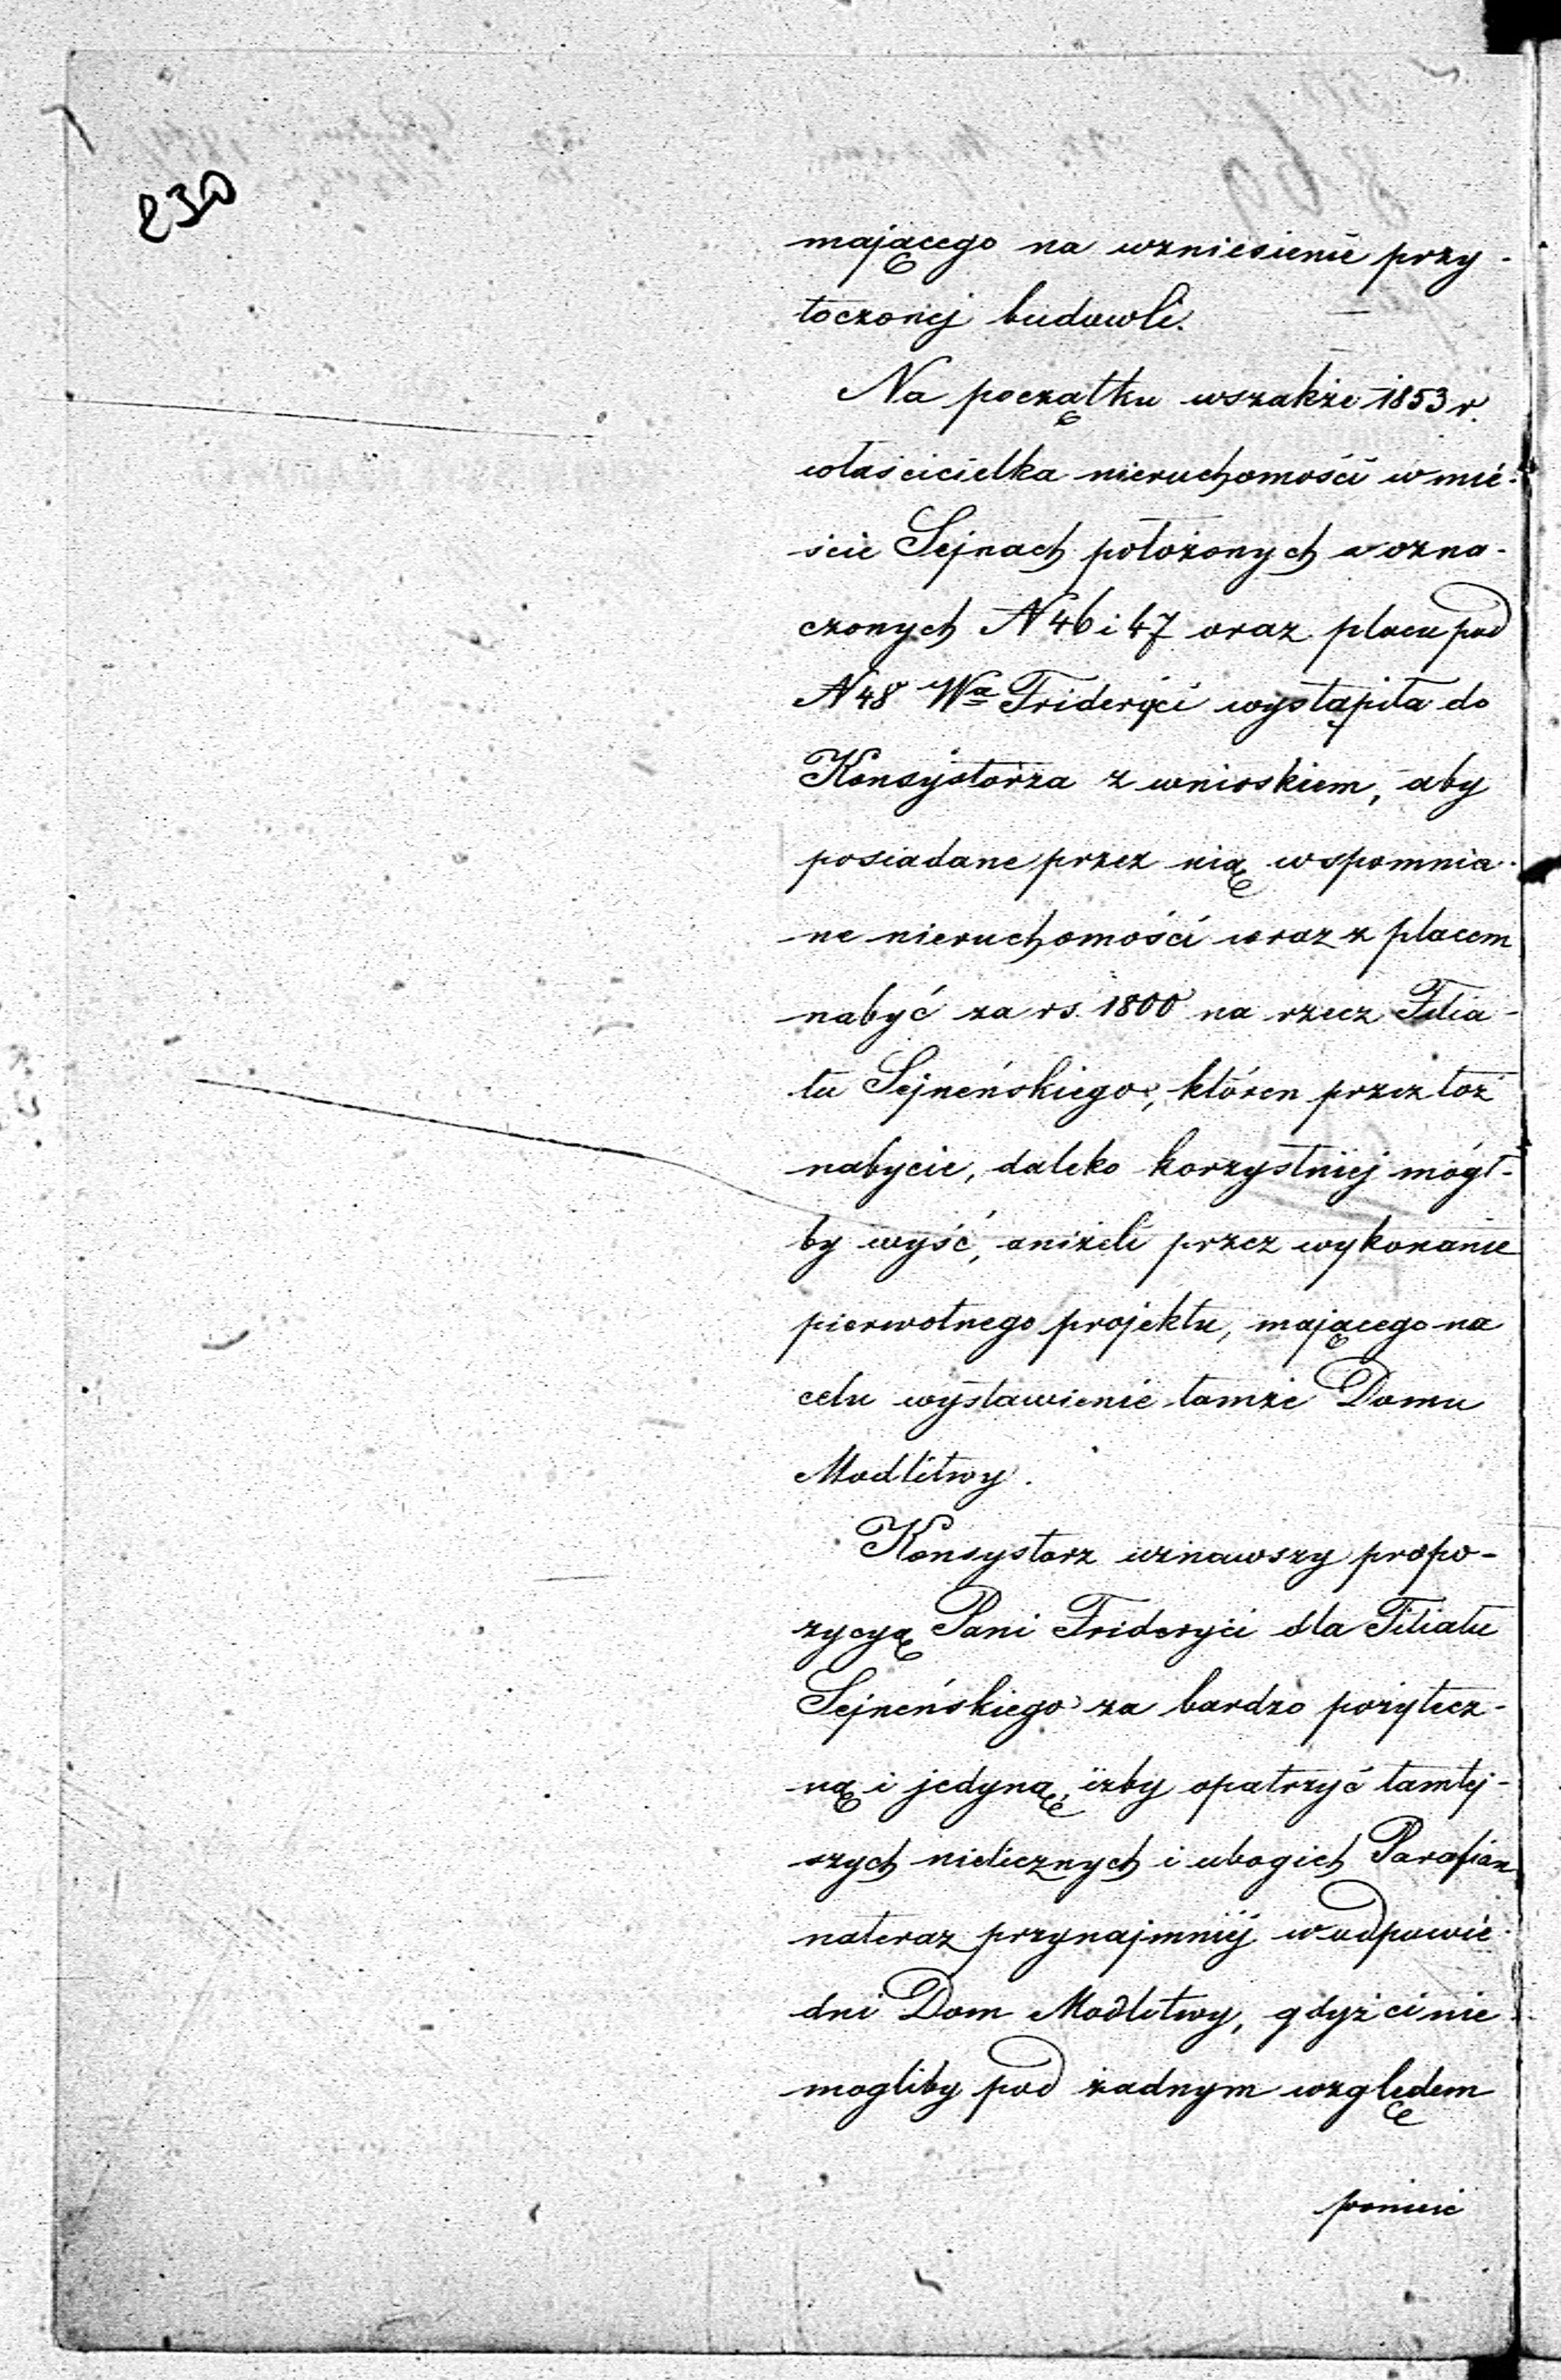 230
mającego na wzniesienie przy-
toczonej budowli.
Na początku wszakże 1853 r.
właścicielka nieruchomości w mie-
ście Sejnach położonych a ozna-
czonych N 46 i 47 oraz placu pod
N 48 Wa Frideryci wystąpiła do
Konsystorza z wnioskiem, aby
posiadane przez nią wspomnia-
ne nieruchomości wraz z placem
nabyć za rs. 1800 na rzecz Filia-
łu Sejneńskiego, któren przez toż
nabycie, daleko korzystniej mógł-
by wyść, aniżeli przez wykonanie
pierwotnego projektu, mającego na
celu wystawienie tamże Domu
Modlitwy.
Konsystorz uznawszy propo-
zycyą Pani Frideryci dla Filiału
Sejneńskiego za bardzo pożytecz-
ną i jedyną, iżby opatrzyć tamtej-
szych nielicznych i ubogich Parafian
nateraz przynajmniej w odpowie-
dni Dom Modlitwy, gdyż ci nie
mogliby pod żadnym względem
ponieść